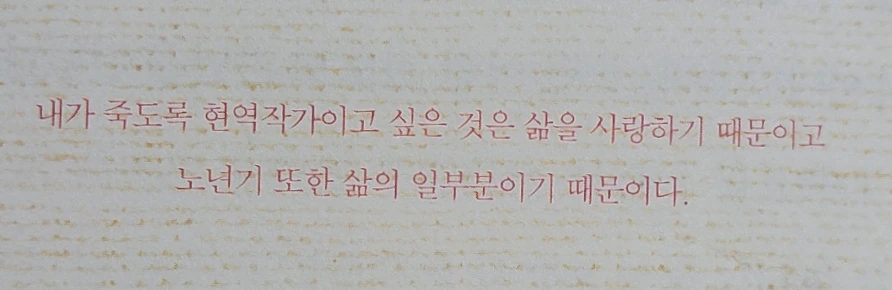 내가 죽도록 현역작가이고 싶은 것은 삶을 사랑하기 때문이고
노년기 또한 삶의 일부분이기 때문이다.